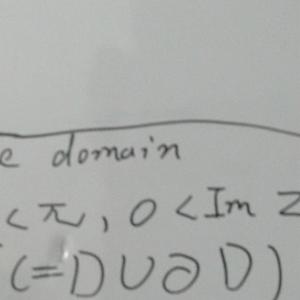 e domain
< π, 0 < Im Z
(= D ∪ ∂ D)